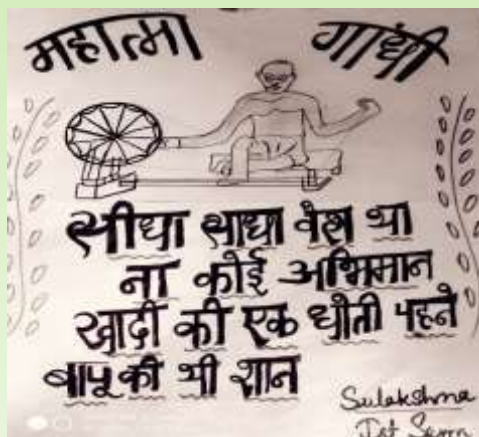 महात्मा गांधी
सीधा साधा वेश था
ना कोई अभिमान
खादी की एक धोती पहने
बापू की थी शान
Sulakshna
Ist Sem